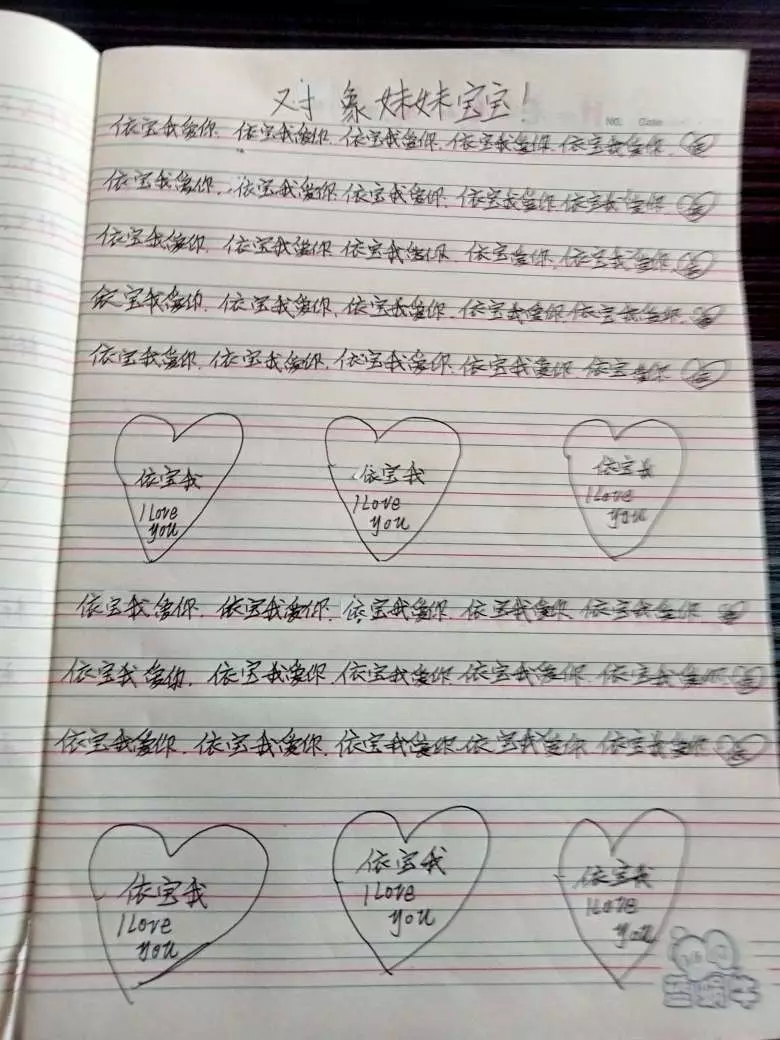 对象妹妹宝宝!
NO. Date
依宝我爱你. 依宝我爱你. 依宝我爱你. 依宝我爱你. 依宝我爱你.
依宝我爱你. 依宝我爱你. 依宝我爱你. 依宝我爱你. 依宝我爱你.
依宝我爱你. 依宝我爱你 依宝我爱你. 依宝爱你. 依宝我爱你.
依宝我爱你. 依宝我爱你. 依宝我爱你. 依宝我爱你. 依宝我爱你.
依宝我爱你. 依宝我爱你. 依宝我爱你. 依宝我爱你. 依宝爱你
依宝我 依宝我 依宝我
I Love I Love I Love
you you you
依宝我爱你. 依宝我爱你. 依宝我爱你. 依宝我爱你. 依宝我爱你
依宝我爱你. 依宝我爱你. 依宝我爱你. 依宝我爱你. 依宝我爱你
依宝我爱你. 依宝我爱你. 依宝我爱你. 依宝我爱你 依宝我爱你
依宝我 依宝我 依宝我
I Love I Love I Love
you you you